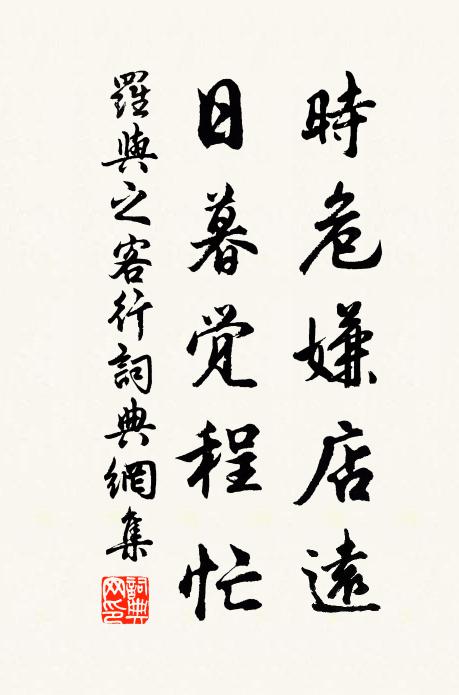 時危嫌店遠
日暮覚程忙
羅與之客行詞典網集
詞典網印